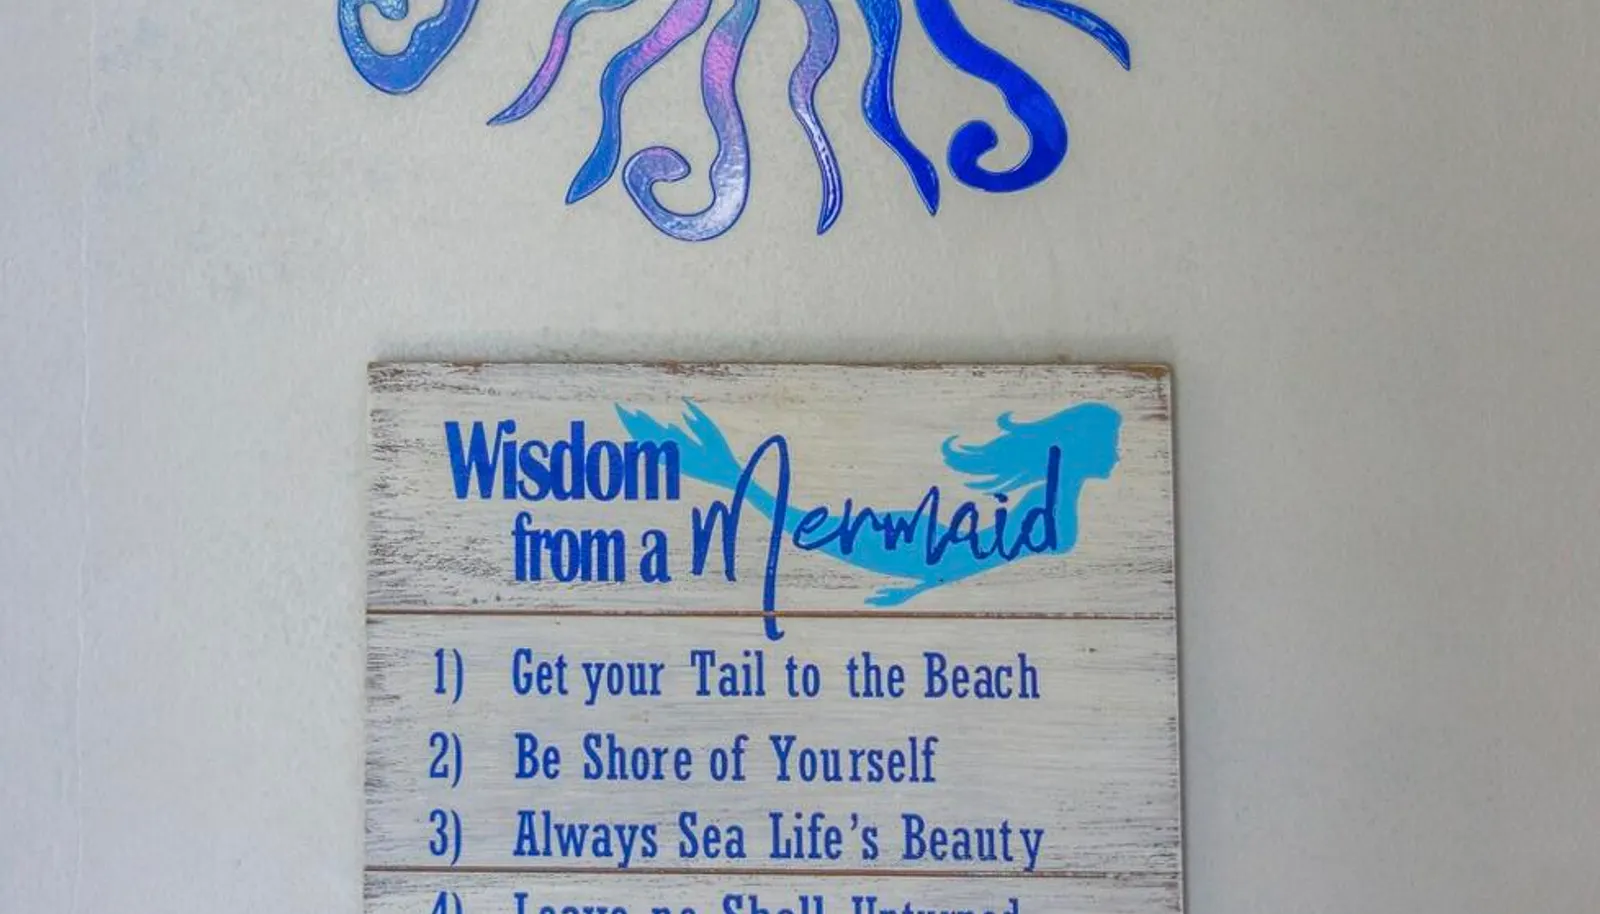 Wisdom
from a Mermaid
1) Get your Tail to the Beach
2) Be Shore of Yourself
3) Always Sea Life's Beauty
4) Leave no Shell Unturned